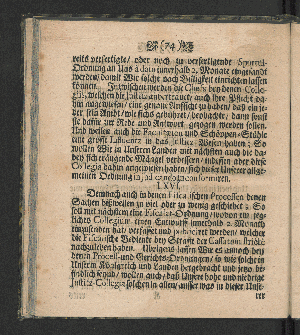 (74)
reits verfertigte/ oder noch zu verfertigende Sportul-
Ordnung an Uns à dato innerhalb 2. Monate eingesandt
werden/damit Wir solche nach Billigkeit einrichten lassen
können. Inzwischen werden die Chefs bey denen Colle-
giis, welchen die Justiz anvertrauet/ auch ihre Pflicht da-
hin angewiesen/ eine genaue Auffsicht zu haben/ daß ein je-
der sein Ambt/ wie sichs gebühret/ beobachte/ dann sonst
sie dafür zur Rede und Antwort gezogen werden sollen.
Und weilen auch die Facultäten und Schöppen-Stühle
eine grosse Influenz in das Justiz-Wesen haben; So
wollen Wir in Unserem Lande mit nächsten auch die da-
bey sich eräugende Mängel verbessern/ indessen aber diese
Collegia dahin angewiesen haben/ sich dieser Unserer allge-
meinen Ordnung in judicando zu conformiren.
LXVI.
Demnach auch in denen Fiscalischen Processen denen
Sachen bißweilen zu viel oder zu wenig geschiehet: So
soll mit nächstem eine Fiscalat-Ordnung/ wovon ein jeg-
liches Collegium einen Entwurff innerhalb 2. Monath
einzusenden hat/ verfasset und publiciret werden/ welcher
die Fiscalische Bediente bey Straffe der Cassation stricte
nachzuleben haben. Übrigens lassen Wir es annoch bey
denen Proceß-und Gerichts-Ordnungen/ so wie solche in
Unserm Königreich und Landen hergebracht und jetzo be-
findlich seynd/ wollen auch/ daß Unsere hohe und niedrige
Justitz-Collegia solchen in allen/ ausser was in dieser Unse-
rer